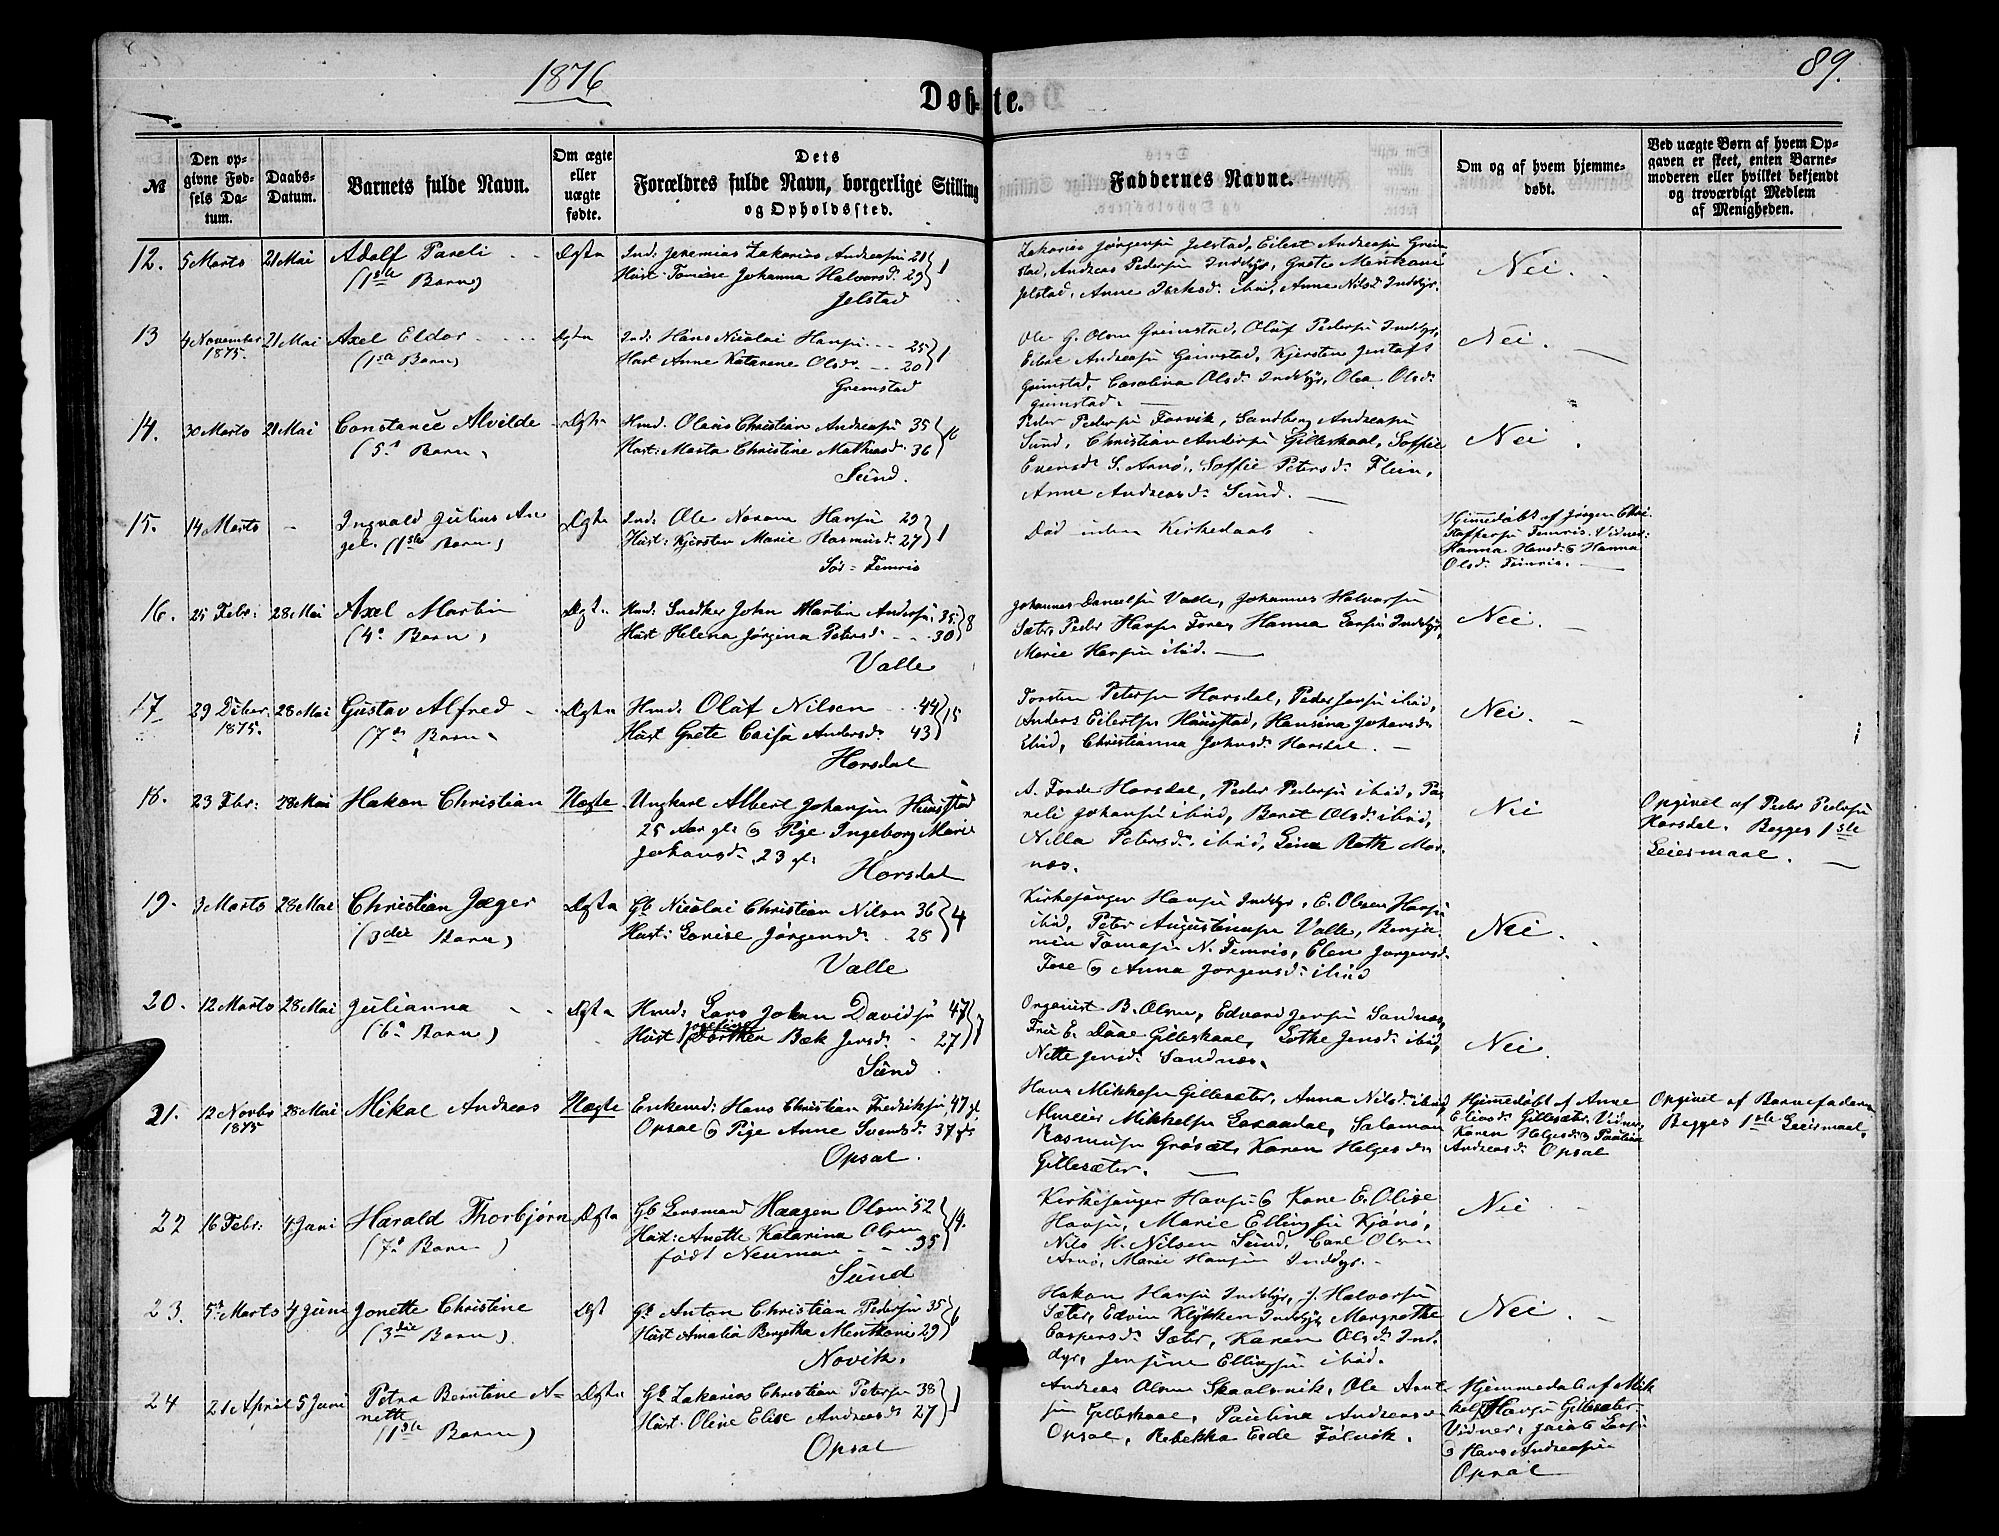 1876
89.
Døbte.
№
Den op-
givne Fød-
sels Da-
tum.
Daabs-
Datum.
Barnets fulde Navn.
Om ægte
eller
uægte
fødte.
Dets
Forældres fulde Navn, borgerlige Stilling
og Opholdssted.
Faddernes Navne.
Om og af hvem hjemme-
døbt.
Ved uægte Børn af hvem Op-
gaven er skeet, enten Barne-
moderen eller hvilket bekjendt
og troværdigt Medlem
af Menigheden.
12. 5 Marts 21 Mai Adolf Pareli Ægta Ind: Jeremias Zakarias Andreasen 21
(1ste Barn) Hust: Johanna Halvorsd. 29 1
Jelstad
Zakarias Jørgensen Jelstad, Eilert Andreasen Grim
stad, Andreas Pedersen Inddyr, Grete Mentzoni
Jelstad, Anne ibid, Anne Nilsd. Inddyr.
Nei.
13 4 November 21 Mai Axel Eldor Ægta Ind: Hans Nicolai Hansen 25
1875. (1ste Barn) Hust Anne Katarene Olsd. 20 1
Gremstad
Ole G. Olsen Greimstad, Oluf Pedersen Inddyr,
Eilert Andreasen Grimstad, Kjersten
Grimstad, Carolina Olsd. Inddyr, Olea Olsd.
Grimstad.
Nei.
14. 30 Marts 21 Mai Constance Alvilde Ægta Hmd. Olaus Christian Andreasen 35
(5te Barn) Hust: Marta Christine Mathiasd. 36
Sund.
Peder Pedersen Forvik, Sandberg Andreasen
Sund, Christian Andersen Gilleskaal, Soffie
Evensd. S. Arnø, Soffie Petersd. Flein,
Anne Andreasd. Sund.
Nei.
15. 14 Marts - Ingvald Julius An
gel. (1ste Barn) Ægta Ind: Ole Norum Hansen 29
Hust: Kjersten Marie Rasmusd. 27 1
Sør-Femris
Død uden Kirkedaab
Hjemmedøbt af Jørgen Chri
stoffersen Femris. Vidner:
Hanna Hansd. & Hanna
Olsd. Femris.
16. 25 Febr: 28 Mai Axel Martin Ægta Hmd. Snedker John Martin Andersen 35
(4de Barn) Hust Helena Jørgina Petersd. 30 8
Valle
Johannes Danielsen Valle, Johannes Halvorsen
Sæter, Peder Hansen Fore, Hanna Larsen Inddyr,
Marie Hansen ibid.
Nei.
17 29 Dcbr: 28 Mai Gustav Alfred Ægta Hmd: Oluf Nilsen 44
1875. (7de Barn) Hust Grete Caisa Andersd. 43 15
Horsdal
Torsten Petersen Horsdal, Peder Jensen ibid,
Anders Eilertsen Hunstad, Hansina Johansd.
Ibid, Christianna Johnsd. Horsdal.
Nei.
18. 23 Fbr: 28 Mai Hakon Christian Uægte Ungkarl Albert Johansen Hunstad
25 Aar gl. & Pige Ingeborg Marie
Johansd. 23 gl.
Horsdal
A. Horsdal, Peder Pedersen ibid, Pa
reli Johansen ibid, Beret Olsd. ibid,
Nilla Petersd. ibid, Lina Roth Mor
næs.
Nei
Opgivet af Peder Pedersen
Horsdal. Begges 1ste
Leiermaal.
19. 3 Marts 28 Mai Christian Jæger Ægta Gb. Nicolai Christian Nilsen 36
(3die Barn) Hust: Lovise Jørgensd. 28 4
Valle
Kirkesanger Hansen Inddyr, E. Olsen Hansen
ibid, Peter Augustinusen Valle, Benja
min Tomasen N. Femris, Elen Jørgensd.
Fore & Anna Jørgensd. ibid
Nei.
20. 12 Marts 28 Mai Julianna Ægta Hmd: Lars Johan Davidsen 47
(6te Barn) Hust Dorthea Bæk Jensd. 27 7
Sund
Organist B. Olsen, Edvard Jensen Sandnes,
Fru E. Daae Gilleskaal, Lothe Jensd. ibid,
Nette Jensd. Sandnes.
Nei.
21. 12 Novbr 28 Mai Mikal Andreas Uægte Enkemd: Hans Christian Fredriksen 47 gl.
1875 Opsal & Pige Anne Svensd. 37 gl.
Opsal.
Hans Mikkelsen Gillesæter, Anna Nilsd. ibid,
Mikkelsen Laxaadal, Salamon
Rasmusen Grøsæt, Karen Helgesd.
Gillesæter.
Hjemmedøbt af Anne
Eliasd. Gillesæter, Vidner
Karen Helgesd. & Paulina
Andreasd. Opsal
Opgivet af Barnefaderen
Begges 1ste Leiermaal.
22 16 Febr: 4 Juni Harald Thorbjørn Ægta Gb. Lensmand Haagen Olsen 52
(7de Barn) Hust: Anette Katarina Olsen
født Neuman 35 14.
Sund
Kirkesanger Hansen & Kone E. Olise
Hansen, Marie Ellingsen Kjønø,
Nils H. Nilsen Sund, Carl Olsen
Arnø, Marie Hansen Inddyr.
Nei
23. 5te Marts 4 Juni Jonette Christine Ægt Gb. Anton Christian Pedersen 35
(3die Barn). Hust Amalia Bergitha Mentzoni 29 6
Novik.
Hakon Hansen Inddyr, J. Halvorsen
Sæter, Edvin Klykken Inddyr, Margrethe
Caspersd. Sæter, Karen Olsd. Ind
dyr, Jensine Ellingsen ibid.
Nei.
24 21 April 5 Juni Petra Berntine A=
nette Ægta Gb. Zakarias Christian Petersen 38
(1ste Barn) Hust: Oline Elise Andreasd. 27 1
Opsal
Andreas Olsen Skaalsvik, Ole Arnt
sen Gilleskaal, Paulina Andreasen
Opsal, Rebekka Følvik.
Hjemmedøbt af Mik
kel Hansen Gillesæter
Vidner: Jacob Larsen
& Hans Andreasen
Opsal